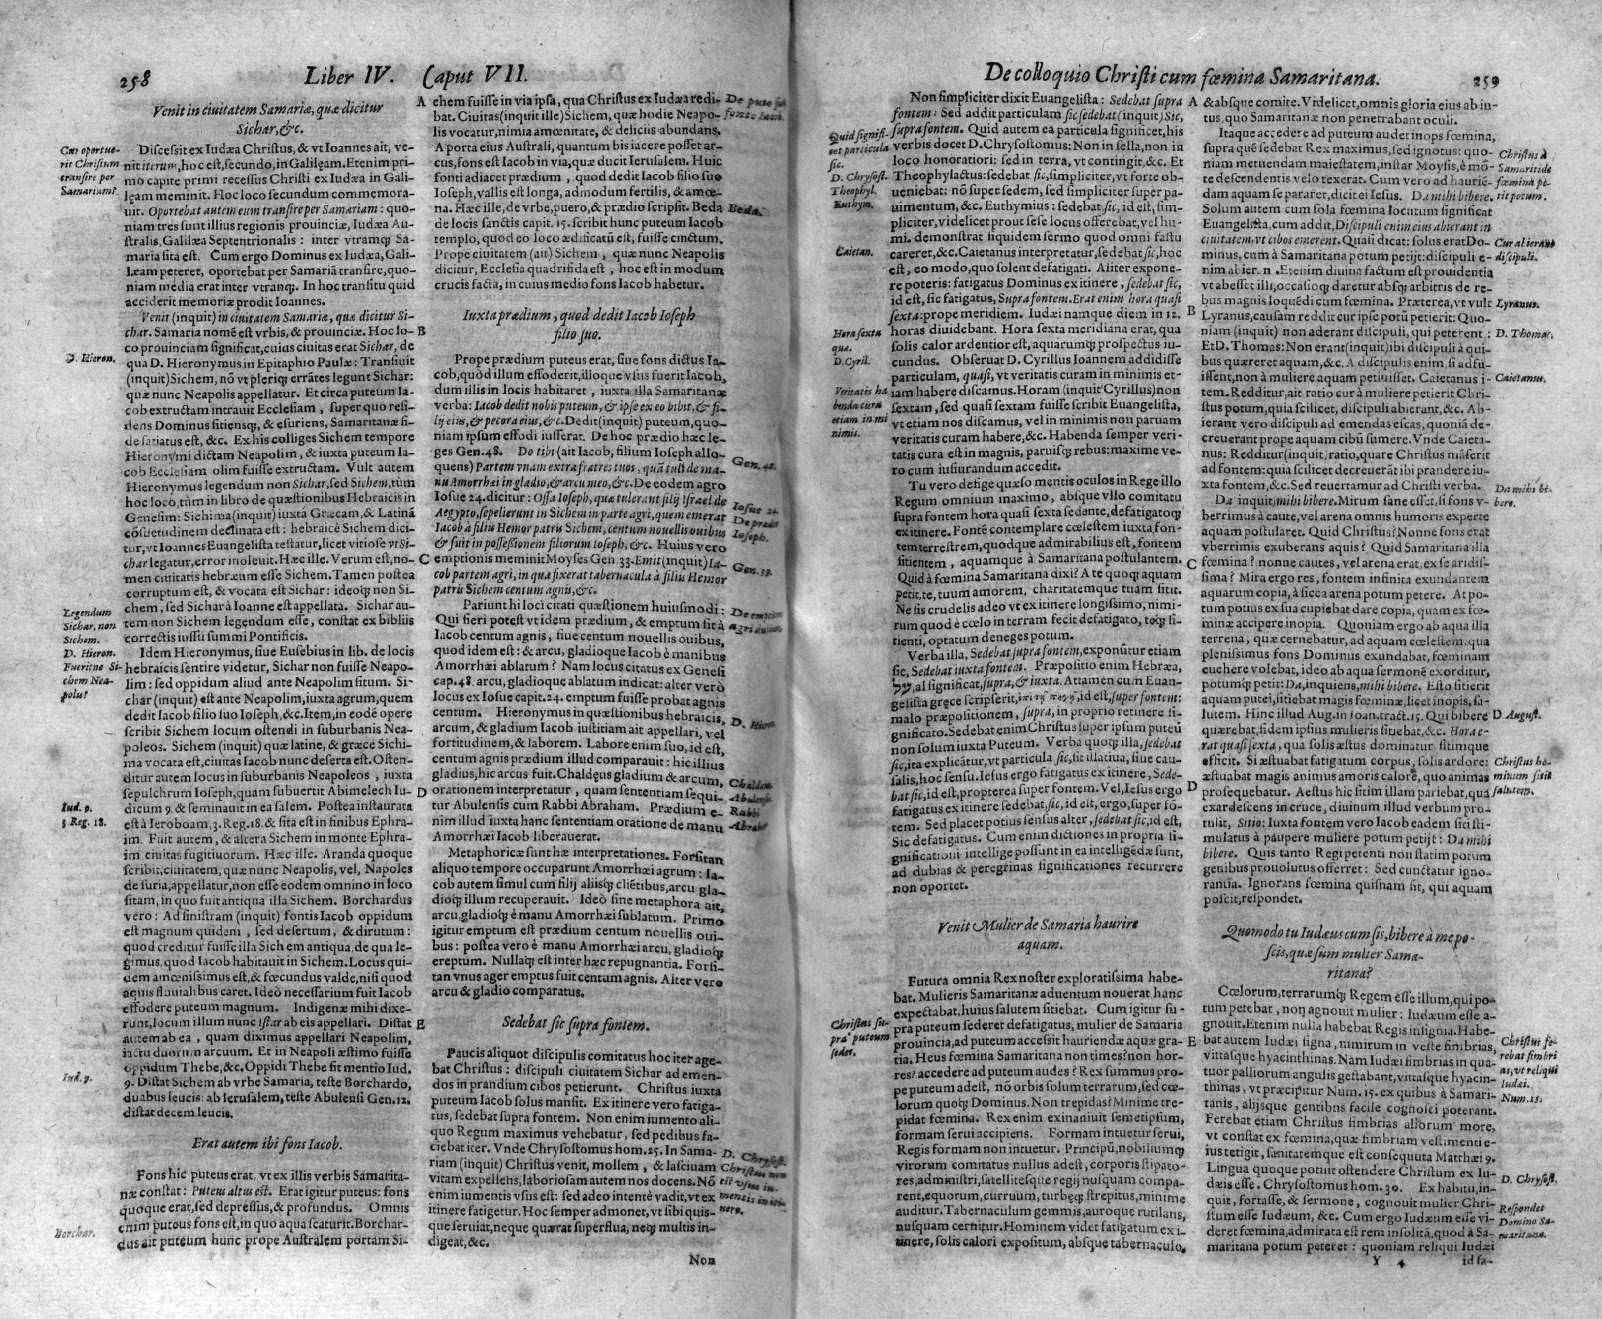 258
Liber IV. Caput VII.
Venit in ciuitatem Samariæ, quæ dicitur
Sichar, &c.
Cur oportue-
rit Christum
transire per
Samariam?
Discessit ex Iudæa Christus, & vt Ioannes ait, ve-
nit iterum, hoc est, secundo, in Galilęam. Etenim pri-
mo capite primi recessus Christi ex Iudæa in Gali-
lęam meminit. Hoc loco secundum commemora-
uit. Oportebat autem eum transire per Samariam: quo-
niam tres sunt illius regionis prouinciæ, Iudæa Au-
stralis, Galilæa Septentrionalis: inter vtramq; Sa-
maria sita est. Cum ergo Dominus ex Iudæa, Gali-
læam peteret, oportebat per Samariā transire, quo-
niam media erat inter vtranq;. In hoc transitu quid
acciderit memoriæ prodit Ioannes.
Venit (inquit) in ciuitatem Samariæ, quæ dicitur Si-
char. Samaria nomē est vrbis, & prouinciæ. Hoc lo-
co prouinciam significat, cuius ciuitas erat Sichar, de
D. Hieron.
qua D. Hieronymus in Epitaphio Paulæ: Transiuit
(inquit) Sichem, nō vt pleriq; errātes legunt Sichar:
quæ nunc Neapolis appellatur. Et circa puteum Ia-
cob extructam intrauit Ecclesiam, super quo resi-
dens Dominus sitiensq;, & esuriens, Samaritanæ fi-
de satiatus est, &c. Ex his colliges Sichem tempore
Hieronymi dictam Neapolim, & iuxta puteum Ia-
cob Ecclesiam olim fuisse extructam. Vult autem
Hieronymus legendum non Sichar, sed Sichem, tùm
hoc loco, tùm in libro de quæstionibus Hebraicis in
Genesim: Sichima (inquit) iuxta Græcam, & Latinā
cōsuetudinem declinata est: hebraicè Sichem dici-
tur, vt Ioannes Euangelista testatur, licet vitiose vt Si-
char legatur, error inoleuit. Hæc ille. Verum est, no-
men ciuitatis hebræum esse Sichem. Tamen postea
corruptum est, & vocata est Sichar: ideoq; non Si-
chem, sed Sichar à Ioanne est appellata. Sichar au-
tem non Sichem legendum esse, constat ex bibliis
correctis iussu summi Pontificis.
Legendum
Sichar, non
Sichem.
D. Hieron.
Fueritne Si-
chem Nea-
polu?
Idem Hieronymus, siue Eusebius in lib. de locis
hebraicis sentire videtur, Sichar non fuisse Neapo-
lim: sed oppidum aliud ante Neapolim situm. Si-
char (inquit) est ante Neapolim, iuxta agrum, quem
dedit Iacob filio suo Ioseph, &c. Item, in eodē opere
scribit Sichem locum ostendi in suburbanis Nea-
poleos. Sichem (inquit) quæ latine, & græce Sichi-
ma vocata est, ciuitas Iacob nunc deserta est. Osten-
ditur autem locus in suburbanis Neapoleos, iuxta
sepulchrum Ioseph, quam subuertit Abimelech Iu-
Iud. 9.
3 Reg. 18.
dicum 9. & seminauit in ea salem. Postea instaurata
est à Ieroboam, 3. Reg. 18. & sita est in finibus Ephra-
im. Fuit autem, & altera Sichem in monte Ephra-
im ciuitas fugitiuorum. Hæc ille. Aranda quoque
scribit, ciuitatem, quæ nunc Neapolis, vel, Napoles
de suria, appellatur, non esse eodem omnino in loco
sitam, in quo fuit antiqua illa Sichem. Borchardus
vero: Ad sinistram (inquit) fontis Iacob oppidum
est magnum quidem, sed desertum, & dirutum:
quod creditur fuisse illa Sichem antiqua, de qua le-
gimus, quod Iacob habitauit in Sichem. Locus qui-
dem amœnissimus est, & fœcundus valde, nisi quod
aquis fluuialibus caret. Ideò necessarium fuit Iacob
effodere puteum magnum. Indigenæ mihi dixe-
runt, locum illum nunc istar ab eis appellari. Distat
autem ab ea, quam diximus appellari Neapolim,
iactu duorum arcuum. Et in Neapoli æstimo fuisse
oppidum Thebe, &c. Oppidi Thebe fit mentio Iud.
Iud. 9.
9. Distat Sichem ab vrbe Samaria, teste Borchardo,
duabus leucis: ab Ierusalem, teste Abulensi Gen. 12.
distat decem leucis.
Erat autem ibi fons Iacob.
Fons hic puteus erat. vt ex illis verbis Samarita-
næ constat: Puteus altus est. Erat igitur puteus: fons
quoque erat, sed depressus, & profundus. Omnis
enim puteus fons est, in quo aqua scaturit. Borchar-
Borchar.
dus ait puteum hunc prope Australem portam Si-
A
B
C
D
E
chem fuisse in via ipsa, qua Christus ex Iudæa redi-
bat. Ciuitas (inquit ille) Sichem, quæ hodie Neapo-
lis vocatur, nimia amœnitate, & deliciis abundans.
A porta eius Australi, quantum bis iacere posset ar-
cus, fons est Iacob in via, quæ ducit Ierusalem. Huic
fonti adiacet prædium, quod dedit Iacob filio suo
Ioseph, vallis est longa, admodum fertilis, & amœ-
na. Hæc ille, de vrbe, puteo, & prædio scripsit. Beda
Beda.
de locis sanctis capit. 15. scribit hunc puteum Iacob
templo, quod eo loco ædificatū est, fuisse cinctum.
Prope ciuitatem (ait) Sichem, quæ nunc Neapolis
dicitur, Ecclesia quadrifida est, hoc est in modum
crucis facta, in cuius medio fons Iacob habetur.
Iuxta prædium, quod dedit Iacob Ioseph
filio suo.
Prope prædium puteus erat, siue fons dictus Ia-
cob, quòd illum effoderit, illoque vsus fuerit Iacob,
dum illis in locis habitaret, iuxta illa Samaritanæ
verba: Iacob dedit nobis puteum, & ipse ex eo bibit, & fi-
lij eius, & pecora eius, &c. Dedit (inquit) puteum, quo-
niam ipsum effodi iusserat. De hoc prædio hæc le-
ges Gen. 48. Do tibi (ait Iacob, filium Ioseph allo-
Gen. 48.
quens) Partem vnam extra fratres tuos, quā tuli de ma-
nu Amorrhæi in gladio, & arcu meo, &c. De eodem agro
Iosue 24. dicitur: Ossa Ioseph, quæ tulerant filij Israel de
Iosue 24.
Aegypto, sepelierunt in Sichem in parte agri, quem emerat
Iacob à filiis Hemor patris Sichem, centum nouellis ouibus
Ioseph.
& fuit in possessionem filiorum Ioseph, &c. Huius vero
emptionis meminit Moyses Gen 33. Emit (inquit) Ia-
Gen. 33.
cob partem agri, in qua fixerat tabernacula à filiis Hemor
patris Sichem centum agnis, &c.
Pariunt hi loci citati quæstionem huiusmodi:
Qui fieri potest vt idem prædium, & emptum sit à
Iacob centum agnis, siue centum nouellis ouibus,
quod idem est: & arcu, gladioque Iacob è manibus
Amorrhæi ablatum? Nam locus citatus ex Genesi
cap. 48. arcu, gladioque ablatum indicat: alter verò
locus ex Iosue capit. 24. emptum fuisse probat agnis
centum. Hieronymus in quæstionibus hebraicis,
D. Hieron.
arcum, & gladium Iacob iustitiam ait appellari, vel
fortitudinem, & laborem. Labore enim suo, id est,
centum agnis prædium illud comparauit: hic illius
gladius, hic arcus fuit. Chaldęus gladium & arcum,
orationem interpretatur, quam sententiam sequi-
tur Abulensis cum Rabbi Abraham. Prædium e-
Rabbi
nim illud iuxta hanc sententiam oratione de manu
Amorrhæi Iacob liberauerat.
Metaphoricæ sunt hæ interpretationes. Forsitan
aliquo tempore occuparunt Amorrhæi agrum: Ia-
cob autem simul cum filij aliisq; cliētibus, arcu gla-
dioq; illum recuperauit. Ideò sine metaphora ait,
arcu, gladioq; è manu Amorrhæi sublatum. Primo
igitur emptum est prædium centum nouellis oui-
bus: postea vero è manu Amorrhæi arcu, gladioq;
ereptum. Nullaq; est inter hæc repugnantia. Forsi-
tan vnus ager emptus fuit centum agnis. Alter vero
arcu & gladio comparatus.
Sedebat sic supra fontem.
Paucis aliquot discipulis comitatus hoc iter age-
bat Christus: discipuli ciuitatem Sichar ad emen-
dos in prandium cibos petierunt. Christus iuxta
puteum Iacob solus mansit. Ex itinere vero fatiga-
tus, sedebat supra fontem. Non enim iumento ali-
quo Regum maximus vehebatur, sed pedibus fa-
ciebat iter. Vnde Chrysostomus hom. 25. In Sama-
D. Chrysost.
riam (inquit) Christus venit, mollem, & lasciuam
vitam expellens, laboriosam autem nos docens. Nō
enim iumentis vsus est: sed adeo intentè vadit, vt ex
itinere fatigetur. Hoc semper admonet, vt sibi quis-
que seruiat, neque quærat superflua, neq; multis in-
digeat, &c.
Non
De colloquio Christi cum fœmina Samaritana.
259
Non simpliciter dixit Euangelista: Sedebat supra
fontem: Sed addit particulam sic sedebat (inquit) Sic,
Quid signifi-
cet particula
sic.
D. Chrysost.
Theophyl.
Euthym.
supra fontem. Quid autem ea particula significet, his
verbis docet D. Chrysostomus: Non in sella, non in
loco honoratiori: sed in terra, vt contingit, &c. Et
Theophylactus: sedebat sic, simpliciter, vt forte ob-
ueniebat: nō super sedem, sed simpliciter super pa-
uimentum, &c. Euthymius: sedebat sic, id est, sim-
pliciter, videlicet prout sese locus offerebat, vel hu-
mi. demonstrat siquidem sermo quod omni fastu
Caietan.
careret, &c. Caietanus interpretatur, sedebat sic, hoc
est, eo modo, quo solent defatigati. Aliter expone-
re poteris: fatigatus Dominus ex itinere, sedebat sic,
id est, sic fatigatus, Supra fontem. Erat enim hora quasi
sexta: prope meridiem. Iudæi namque diem in 12.
Hora sexta
qua.
D. Cyril.
horas diuidebant. Hora sexta meridiana erat, qua
solis calor ardentior est, aquarumq; prospectus iu-
cundus. Obseruat D. Cyrillus Ioannem addidisse
particulam, quasi, vt veritatis curam in minimis et-
Veritatis ha
benda cura
etiam in mi
nimis.
iam habere discamus. Horam (inquit Cyrillus) non
sextam, sed quasi sextam fuisse scribit Euangelista,
vt etiam nos discamus, vel in minimis non paruam
veritatis curam habere, &c. Habenda semper veri-
tatis cura est in magnis, paruisq; rebus: maxime ve-
ro cum iusiurandum accedit.
Tu vero defige quæso mentis oculos in Rege illo
Regum omnium maximo, absque vllo comitatu
supra fontem hora quasi sexta sedente, defatigatoq;
ex itinere. Fontē contemplare cœlestem iuxta, fon-
tem terrestrem, quodque admirabilius est, fontem
sitientem, aquamque à Samaritana postulantem.
Quid à fœmina Samaritana dixi? A te quoq; aquam
petit, te, tuum amorem, charitatemque tuam sitit.
Ne sis crudelis adeo vt ex itinere longissimo, nimi-
rum quod è cœlo in terram fecit defatigato, totq; si-
tienti, optatum deneges potum.
Verba illa, Sedebat supra fontem, exponūtur etiam
sic, Sedebat iuxta fontem. Præpositio enim Hebræa,
על, al significat, supra, & iuxta. Attamen cum Euan-
gelista gręce scripserit, ἐπὶ τῇ πηγῇ, id est, super fontem:
malo præpositionem, supra, in proprio retinere si-
gnificato. Sedebat enim Christus super ipsum puteū
non solum iuxta Puteum. Verba quoq; illa, sedebat
sic, ita explicātur, vt particula sic, sit illatiua, siue cau-
salis, hoc sensu. Iesus ergo fatigatus ex itinere, Sede-
bat sic, id est, propterea super fontem. Vel, Iesus ergo
fatigatus ex itinere sedebat, sic, id est, ergo, super fō-
tem. Sed placet potius sensus alter, sedebat sic, id est,
Sic defatigatus. Cum enim dictiones in propria si-
gnificationi intellige possunt in ea intelligēdæ sunt,
ad dubias & peregrinas significationes recurrere
non oportet.
Venit Mulier de Samaria haurire
aquam.
Futura omnia Rex noster exploratissima habe-
bat. Mulieris Samaritanæ aduentum nouerat hanc
expectabat, huius salutem sitiebat. Cum igitur su-
Christus su-
pra puteum
sedet.
pra puteum sederet defatigatus, mulier de Samaria
prouincia, ad puteum accessit hauriendæ aquæ gra-
tia. Heus fœmina Samaritana non times? non hor-
res? accedere ad puteum audes? Rex summus pro-
pe puteum adest, nō orbis solum terrarum, sed cœ-
lorum quoq; Dominus. Non trepidas? Minime tre-
pidat fœmina. Rex enim exinaniuit semetipsum,
formam serui accipiens. Formam intuetur serui,
Regis formam non intuetur. Principū, nobiliumq;
virorum comitatus nullus adest, corporis stipato-
res, administri, satellitesque regij nusquam compa-
rent, equorum, curruum, turbęq; strepitus, minime
auditur. Tabernaculum gemmis, auroque rutilans,
nusquam cernitur. Hominem videt fatigatum ex i-
tinere, solis calori expositum, absque tabernaculo,
A
B
C
D
E
& absque comite. Videlicet, omnis gloria eius ab in-
tus, quo Samaritanæ non penetrabant oculi.
Itaque accedere ad puteum audet inops fœmina,
supra quē sedebat Rex maximus, sed ignotus: quo-
Christus à
Samaritide
fœmina pe-
tit potum.
niam metuendam maiestatem, instar Moysis, è mō-
te descendentis velo texerat. Cum vero ad haurię-
dam aquam se pararet, dicit ei Iesus. Da mihi bibere.
Solum autem cum sola fœmina locutum significat
Euangelista, cum addit, Discipuli enim eius abierant in
ciuitatem, vt cibos emerent. Quasi dicat: solus erat Do-
Cur abierant
discipuli.
minus, cum à Samaritana potum petijt: discipuli e-
nim abier. n. Etenim diuina factum est prouidentia
vt abessēt illi, occasioq; daretur absq; arbitris de re-
bus magnis loquēdi cum fœmina. Præterea, vt vult
Lyranus.
Lyranus, causam reddit cur ipse potū petierit: Quo-
niam (inquit) non aderant discipuli, qui peterent:
D. Thomas.
Et D. Thomas: Non erant (inquit) ibi discipuli à qui-
bus quæreret aquam, &c. A discipulis enim, si adfu-
issent, non à muliere aquam petiuisset. Caietanus i-
Caietanus.
tem. Redditur, ait ratio cur à muliere petierit Chri-
stus potum, quia scilicet, discipuli abierant, &c. Ab-
ierant vero discipuli ad emendas escas, quoniā de-
creuerant prope aquam cibū sumere. Vnde Caieta-
nus: Redditur (inquit) ratio, quare Christus māserit
ad fontem: quia scilicet decreuerāt ibi prandere iu-
xta fontem, &c. Sed reuertamur ad Christi verba.
Da mihi bi-
bere.
Da inquit, mihi bibere. Mirum sane esset, si fons v-
berrimus à caute, vel arena omnis humoris experte
aquam postularet. Quid Christus? Nonne fons erat
vberrimis exuberans aquis? Quid Samaritana illa
fœmina? nonne cautes, vel arena erat, ex se aridis-
sima? Mira ergo res, fontem infinita exundantem
aquarum copia, à sicca arena potum petere. At po-
tum potius ex sua cupiebat dare copia, quam ex fœ-
minæ accipere inopia. Quoniam ergo ab aqua illa
terrena, quæ cernebatur, ad aquam cœlestem. qua
plenissimus fons Dominus exundabat, fœminam
euehere volebat, ideo ab aqua sermonē exorditur,
potumq; petit: Da, inquiens, mihi bibere. Esto sitierit
aquam putei, sitiebat magis fœminæ, licet inopis, sa-
lutem. Hinc illud Aug. in Ioan. tract. 15. Qui bibere
D August.
quærebat, fidem ipsius mulieris sitiebat, &c. Hora e-
rat quasi sexta, qua solis æstus dominatur sitimque
Christus ho-
minum sitit
salutem.
efficit. Si æstuabat fatigatum corpus, solis ardore:
æstuabat magis animus amoris calorē, quo animas
prosequebatur. Aestus hic sitim illam pariebat, qua
exardescens in cruce, diuinum illud verbum pro-
tulit, Sitio: Iuxta fontem vero Iacob eadem siti sti-
mulatus à paupere muliere potum petijt: Da mihi
bibere. Quis tanto Regi petenti non statim potum
genibus prouolutus offerret: Sed cunctatur igno-
rantia. Ignorans fœmina quisnam sit, qui aquam
poscit, respondet.
Quomodo tu Iudæus cum sis, bibere à me po-
scis, quæ sum mulier Sama-
ritana?
Cœlorum, terrarumq; Regem esse illum, qui po-
tum petebat, non agnouit mulier: Iudæum esse a-
gnouit. Etenim nulla habebat Regis insignia. Habe-
Christus fe-
rebat fimbri
as, vt reliqui
Iudæi.
Num. 15.
bat autem Iudæi signa, nimirum in veste fimbrias,
vittasque hyacinthinas. Nam Iudæi fimbrias in qua-
tuor palliorum angulis gestabant, vittasque hyacin-
thinas, vt præcipitur Num. 15. ex quibus à Samari-
tanis, alijsque gentibns facile cognosci poterant.
Ferebat etiam Christus fimbrias aliorum more,
vt constat ex fœmina, quæ fimbriam vestimenti e-
ius tetigit, sanitatemque est consequuta Matthæi 9.
Lingua quoque potuit ostendere Christum ex Iu-
D. Chrysost.
dæis esse. Chrysostomus hom. 30. Ex habitu, in-
quit, fortasse, & sermone, cognouit mulier Chri-
Respondet
Domino Sa-
maritana.
stum esse Iudæum, &c. Cum ergo Iudæum esse vi-
deret fœmina, admirata est rem insolitā, quod à Sa-
maritana potum peteret: quoniam reliqui Iudæi
Y
id fa-